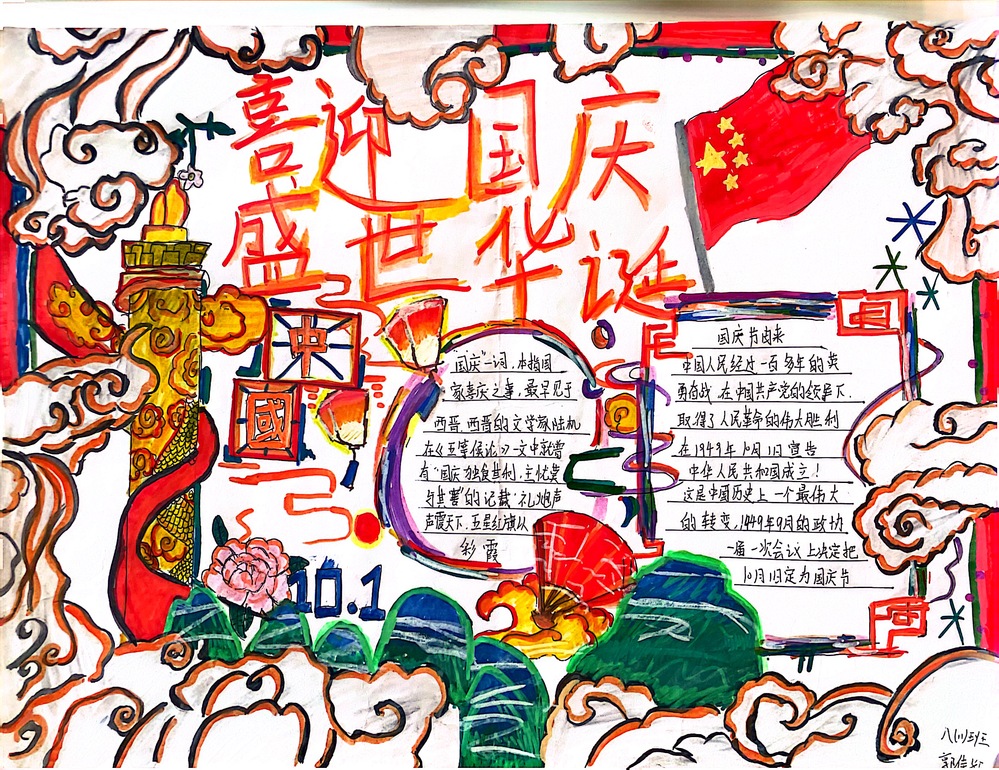 喜迎国庆
盛世华诞
中
國
10.1
"国庆"一词，本指国
家喜庆之事，最早见于
西晋，西晋的文学家陆机
在《五等诸侯论》一文中就曾
有"国庆独飨其利，主忧莫
与其害"的记载，礼炮声
声震天下，五星红旗似
彩霞
国庆节由来
中国人民经过一百多年的英
勇奋战，在中国共产党的领导下，
取得了人民革命的伟大胜利
在1949年10月1日宣告
中华人民共和国成立！
这是中国历史上一个最伟大
的转变，1949年9月的政协
一届一次会议上决定把
10月1日定为国庆节
八(1)班